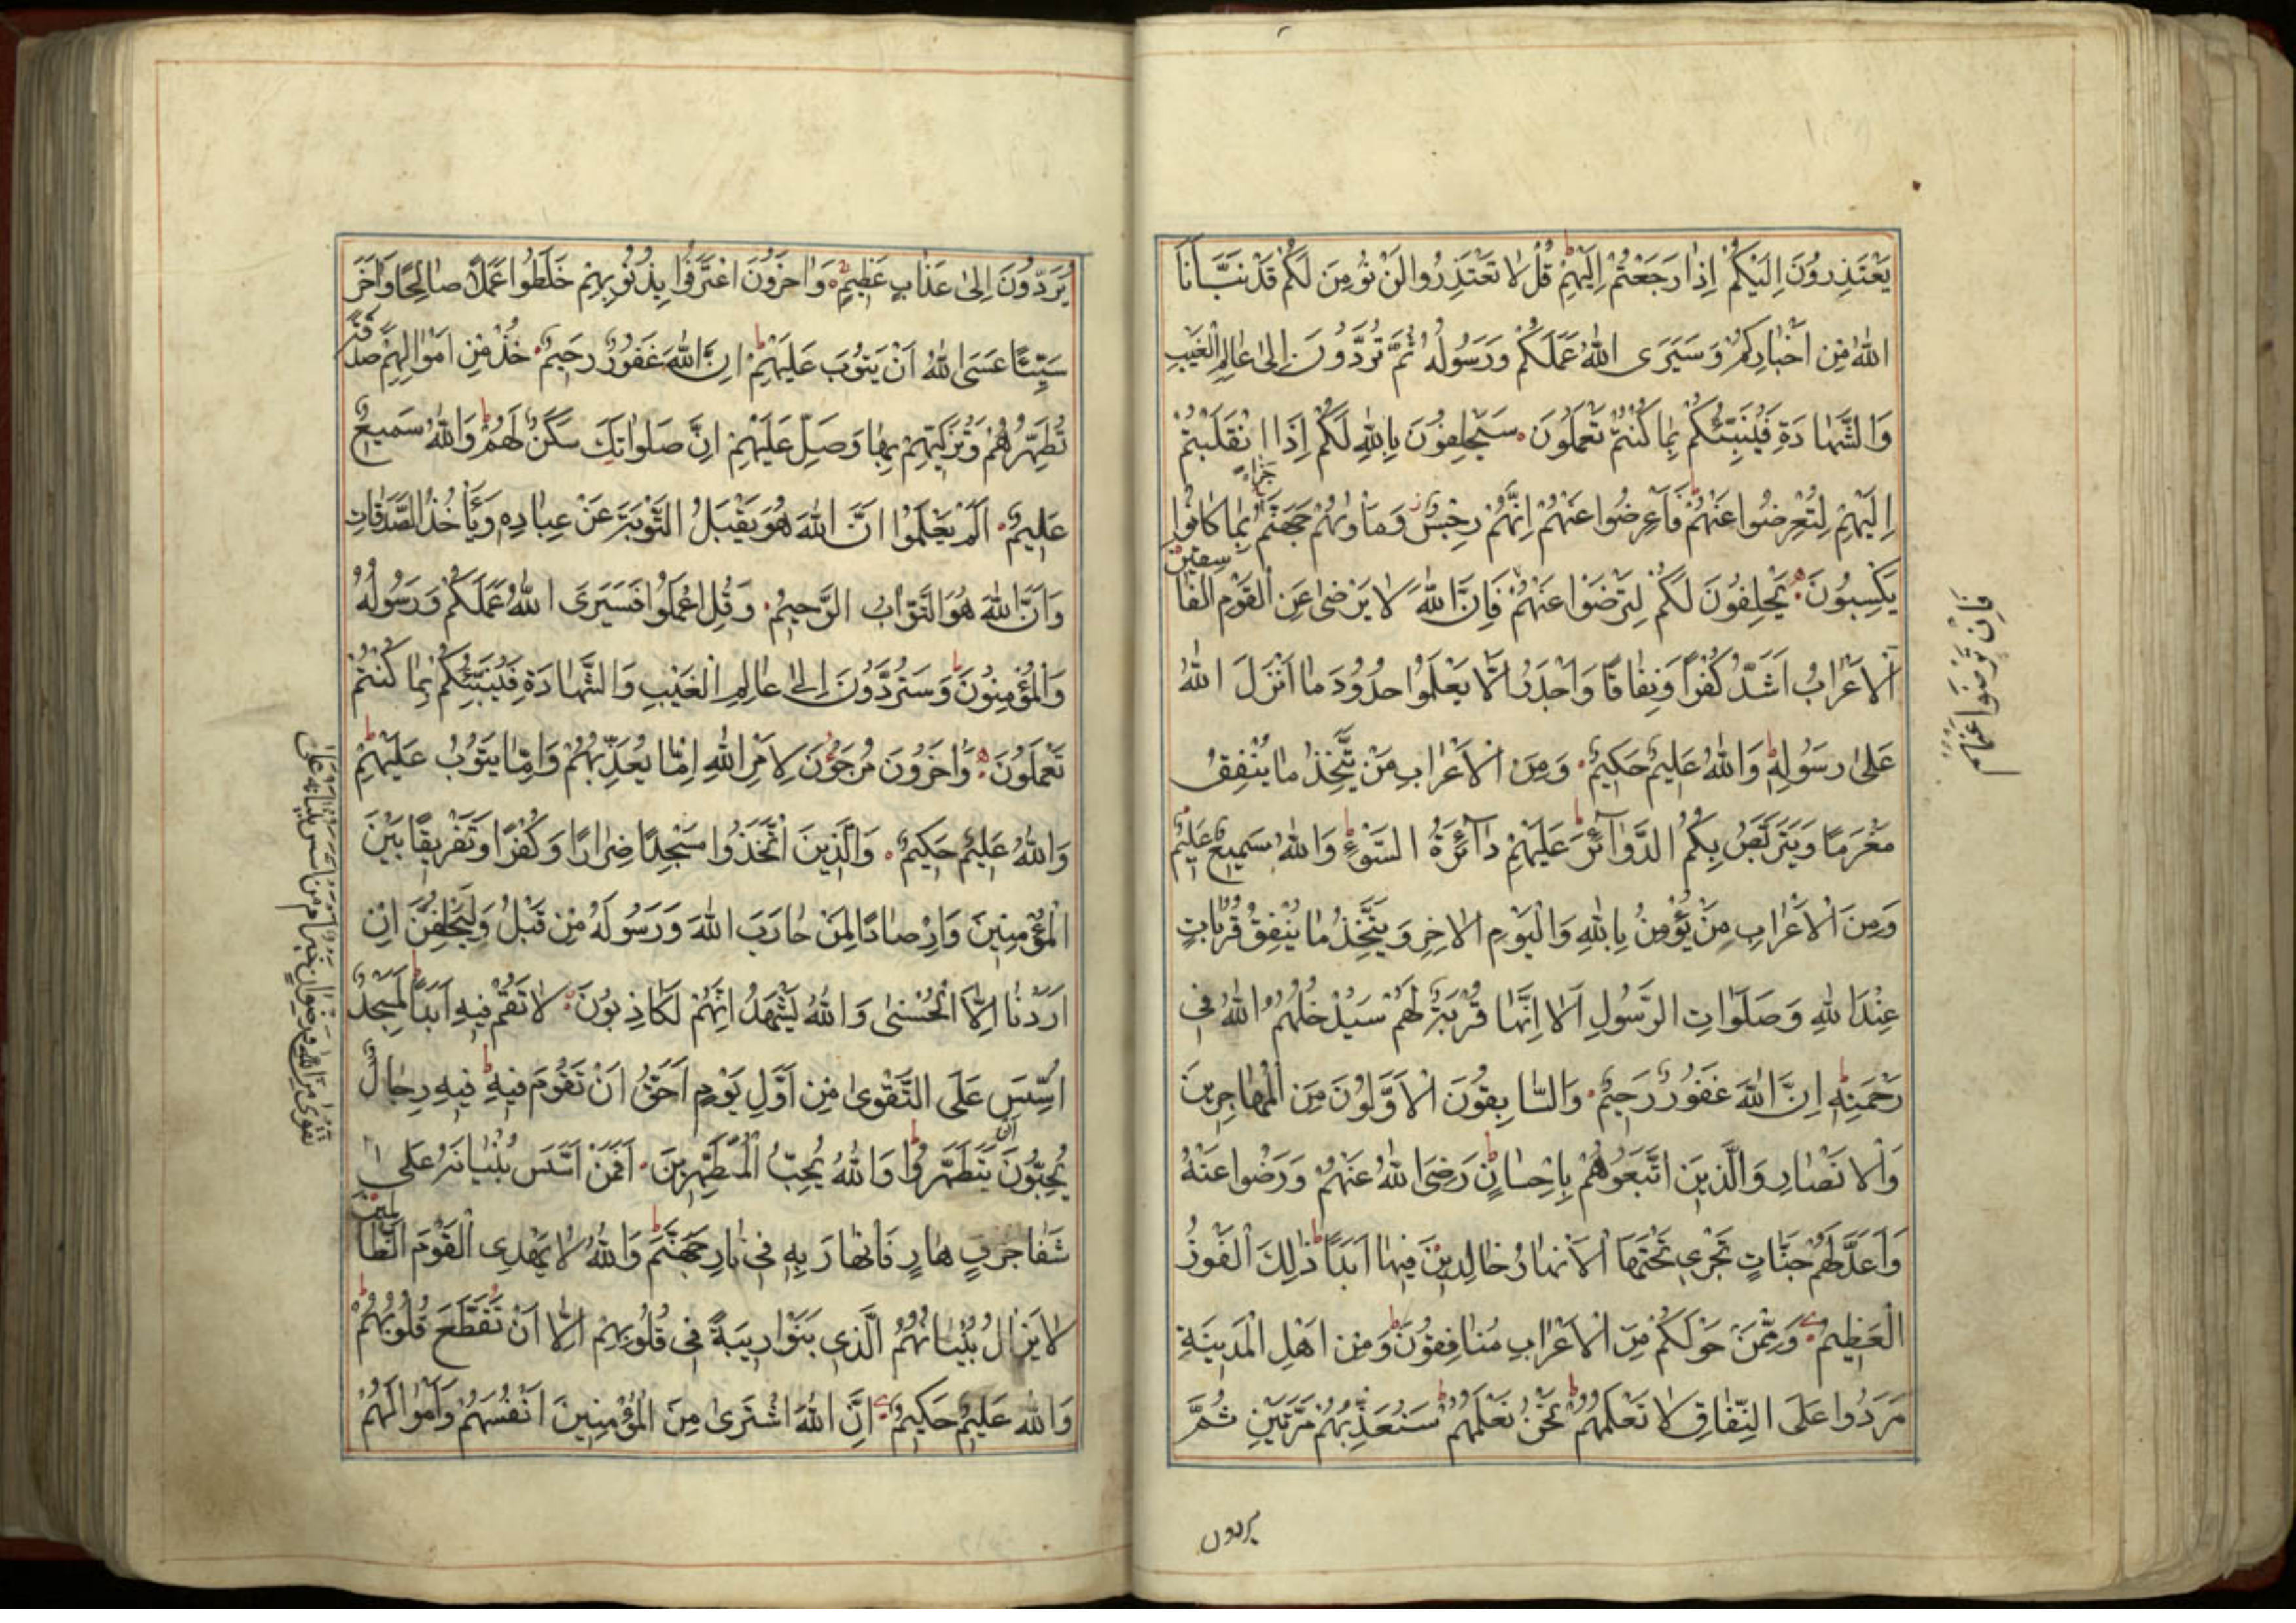 يَعْتَذِرُونَ اِلَيْكُمْ اِذَا رَجَعْتُمْ اِلَيْهِمْ قُلْ لَا تَعْتَذِرُوا لَنْ نُؤْمِنَ لَكُمْ قَدْ نَبَّاَنَا
اللّٰهُ مِنْ اَخْبَارِكُمْ وَسَيَرَى اللّٰهُ عَمَلَكُمْ وَرَسُولُهُ ثُمَّ تُرَدُّونَ اِلٰى عَالِمِ الْغَيْبِ
وَالشَّهَادَةِ فَيُنَبِّئُكُمْ بِمَا كُنْتُمْ تَعْمَلُونَ سَيَحْلِفُونَ بِاللّٰهِ لَكُمْ اِذَا انْقَلَبْتُمْ
اِلَيْهِمْ لِتُعْرِضُوا عَنْهُمْ فَاَعْرِضُوا عَنْهُمْ اِنَّهُمْ رِجْسٌ وَمَاْوٰيهُمْ جَهَنَّمُ جَزَاءً بِمَا كَانُوا
يَكْسِبُونَ يَحْلِفُونَ لَكُمْ لِتَرْضَوْا عَنْهُمْ فَاِنَّ اللّٰهَ لَا يَرْضٰى عَنِ الْقَوْمِ الْفَاسِقِينَ
فَاِنْ تَرْضَوْا عَنْهُمْ
اَلْاَعْرَابُ اَشَدُّ كُفْرًا وَنِفَاقًا وَاَجْدَرُ اَلَّا يَعْلَمُوا حُدُودَ مَا اَنْزَلَ اللّٰهُ
عَلٰى رَسُولِهِ وَاللّٰهُ عَلِيمٌ حَكِيمٌ وَمِنَ الْاَعْرَابِ مَنْ يَتَّخِذُ مَا يُنْفِقُ
مَغْرَمًا وَيَتَرَبَّصُ بِكُمُ الدَّوَائِرَ عَلَيْهِمْ دَائِرَةُ السَّوْءِ وَاللّٰهُ سَمِيعٌ عَلِيمٌ
وَمِنَ الْاَعْرَابِ مَنْ يُؤْمِنُ بِاللّٰهِ وَالْيَوْمِ الْاٰخِرِ وَيَتَّخِذُ مَا يُنْفِقُ قُرُبَاتٍ
عِنْدَ اللّٰهِ وَصَلَوَاتِ الرَّسُولِ اَلَا اِنَّهَا قُرْبَةٌ لَهُمْ سَيُدْخِلُهُمُ اللّٰهُ فِي
رَحْمَتِهِ اِنَّ اللّٰهَ غَفُورٌ رَحِيمٌ وَالسَّابِقُونَ الْاَوَّلُونَ مِنَ الْمُهَاجِرِينَ
وَالْاَنْصَارِ وَالَّذِينَ اتَّبَعُوهُمْ بِاِحْسَانٍ رَضِيَ اللّٰهُ عَنْهُمْ وَرَضُوا عَنْهُ
وَاَعَدَّ لَهُمْ جَنَّاتٍ تَجْرِي تَحْتَهَا الْاَنْهَارُ خَالِدِينَ فِيهَا اَبَدًا ذٰلِكَ الْفَوْزُ
الْعَظِيمُ وَمِمَّنْ حَوْلَكُمْ مِنَ الْاَعْرَابِ مُنَافِقُونَ وَمِنْ اَهْلِ الْمَدِينَةِ
مَرَدُوا عَلَى النِّفَاقِ لَا تَعْلَمُهُمْ نَحْنُ نَعْلَمُهُمْ سَنُعَذِّبُهُمْ مَرَّتَيْنِ ثُمَّ
يردون
يُرَدُّونَ اِلٰى عَذَابٍ عَظِيمٍ وَاٰخَرُونَ اعْتَرَفُوا بِذُنُوبِهِمْ خَلَطُوا عَمَلًا صَالِحًا وَاٰخَرَ
سَيِّئًا عَسَى اللّٰهُ اَنْ يَتُوبَ عَلَيْهِمْ اِنَّ اللّٰهَ غَفُورٌ رَحِيمٌ خُذْ مِنْ اَمْوَالِهِمْ صَدَقَةً
تُطَهِّرُهُمْ وَتُزَكِّيهِمْ بِهَا وَصَلِّ عَلَيْهِمْ اِنَّ صَلَوَاتِكَ سَكَنٌ لَهُمْ وَاللّٰهُ سَمِيعٌ
عَلِيمٌ اَلَمْ يَعْلَمُوا اَنَّ اللّٰهَ هُوَ يَقْبَلُ التَّوْبَةَ عَنْ عِبَادِهِ وَيَاْخُذُ الصَّدَقَاتِ
وَاَنَّ اللّٰهَ هُوَ التَّوَّابُ الرَّحِيمُ وَقُلِ اعْمَلُوا فَسَيَرَى اللّٰهُ عَمَلَكُمْ وَرَسُولُهُ
وَالْمُؤْمِنُونَ وَسَتُرَدُّونَ اِلٰى عَالِمِ الْغَيْبِ وَالشَّهَادَةِ فَيُنَبِّئُكُمْ بِمَا كُنْتُمْ
تَعْمَلُونَ وَاٰخَرُونَ مُرْجَوْنَ لِاَمْرِ اللّٰهِ اِمَّا يُعَذِّبُهُمْ وَاِمَّا يَتُوبُ عَلَيْهِمْ
وَاللّٰهُ عَلِيمٌ حَكِيمٌ وَالَّذِينَ اتَّخَذُوا مَسْجِدًا ضِرَارًا وَكُفْرًا وَتَفْرِيقًا بَيْنَ
الْمُؤْمِنِينَ وَاِرْصَادًا لِمَنْ حَارَبَ اللّٰهَ وَرَسُولَهُ مِنْ قَبْلُ وَلَيَحْلِفُنَّ اِنْ
اَرَدْنَا اِلَّا الْحُسْنٰى وَاللّٰهُ يَشْهَدُ اِنَّهُمْ لَكَاذِبُونَ لَا تَقُمْ فِيهِ اَبَدًا لَمَسْجِدٌ
اُسِّسَ عَلَى التَّقْوٰى مِنْ اَوَّلِ يَوْمٍ اَحَقُّ اَنْ تَقُومَ فِيهِ فِيهِ رِجَالٌ
يُحِبُّونَ اَنْ يَتَطَهَّرُوا وَاللّٰهُ يُحِبُّ الْمُطَّهِّرِينَ اَفَمَنْ اَسَّسَ بُنْيَانَهُ عَلٰى
تقوى من الله ورضوان خير ام من اسس بنيانه على
شَفَا جُرُفٍ هَارٍ فَانْهَارَ بِهِ فِي نَارِ جَهَنَّمَ وَاللّٰهُ لَا يَهْدِي الْقَوْمَ الظَّالِمِينَ
لَا يَزَالُ بُنْيَانُهُمُ الَّذِي بَنَوْا رِيبَةً فِي قُلُوبِهِمْ اِلَّا اَنْ تَقَطَّعَ قُلُوبُهُمْ
وَاللّٰهُ عَلِيمٌ حَكِيمٌ اِنَّ اللّٰهَ اشْتَرٰى مِنَ الْمُؤْمِنِينَ اَنْفُسَهُمْ وَاَمْوَالَهُمْ